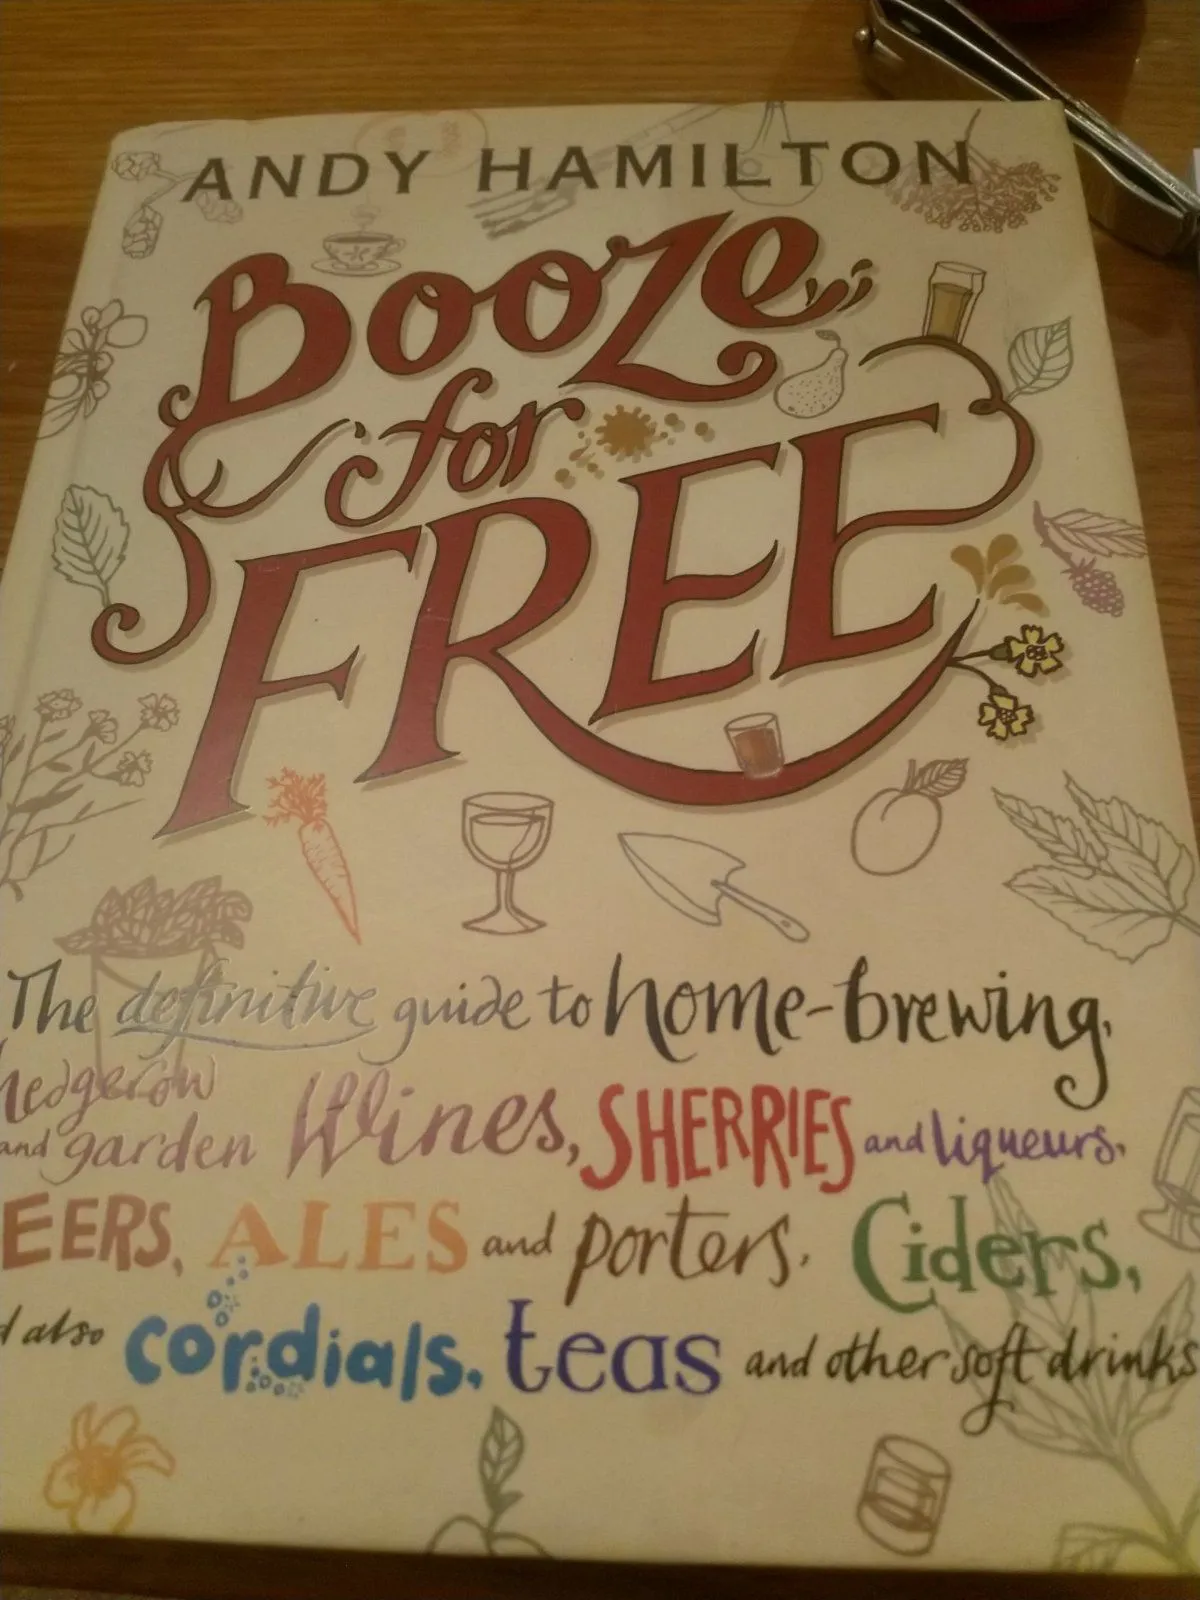 ANDY HAMILTON
Booze
for
FREE
The definitive guide to home-brewing,
hedgerow
and garden Wines, SHERRIES and liqueurs,
EERS, ALES and porters, Ciders,
d also cordials, teas and other soft drinks